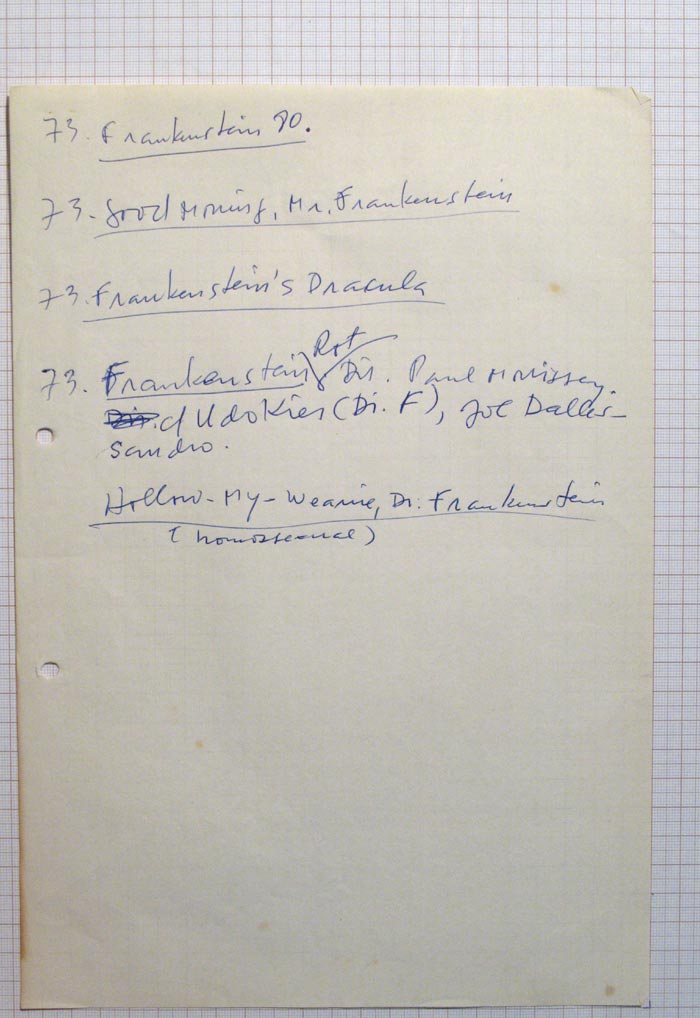 73. Frankenstein 80.
73. Good Morning, Mr. Frankenstein
73. Frankenstein's Dracula
Rot
73. Frankenstein Dir. Paul Morrissey,
c/ Udo Kier (Dr. F), Joe Dalles-
sandro.
Hollow-My-Weanie, Dr. Frankenstein
(homossexual)